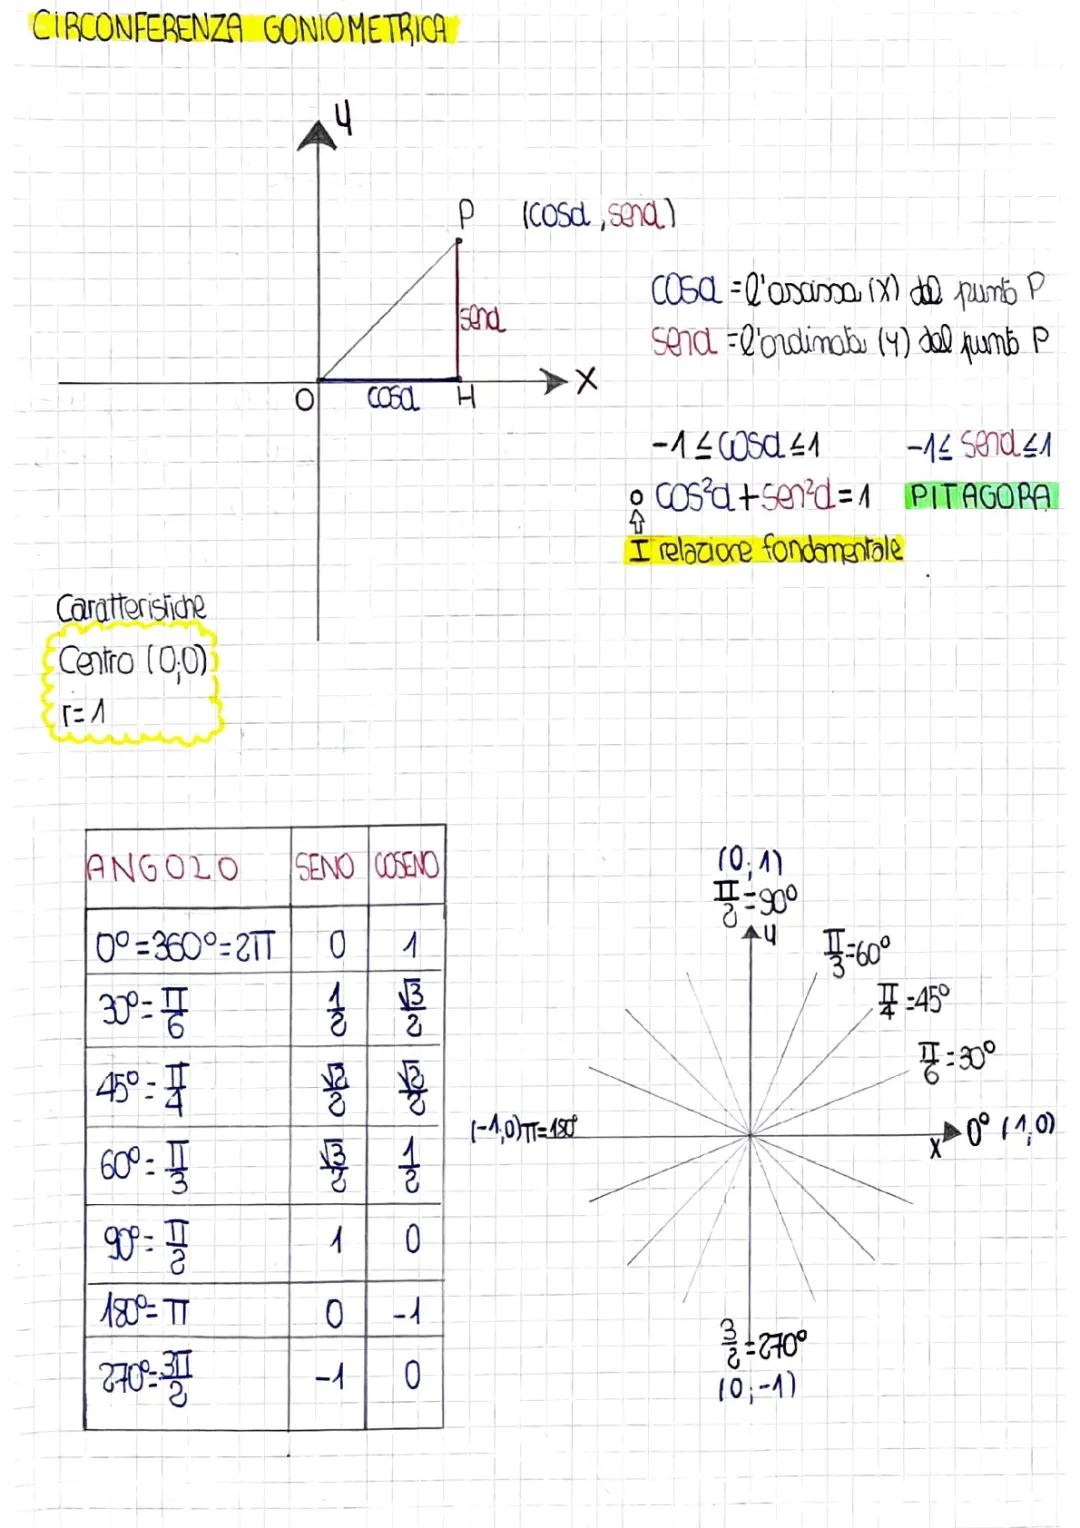 CIRCONFERENZA GONIOMETRICA
y
P (cosα, senα)
cosα = l'ascissa (x) del punto P
senα
senα = l'ordinata (y) del punto P
O cosα H x
-1 ≤ cosα ≤ 1 -1 ≤ senα ≤ 1
cos²α + sen²α = 1 PITAGORA
I relazione fondamentale
Caratteristiche
Centro (0;0)
r = 1
ANGOLO SENO COSENO
0° = 360° = 2π 0 1
30° = π/6 1/2 √3/2
45° = π/4 √2/2 √2/2
60° = π/3 √3/2 1/2
90° = π/2 1 0
180° = π 0 -1
270° = 3π/2 -1 0
(0;1)
π/2 = 90°
y
π/3 = 60°
π/4 = 45°
π/6 = 30°
(-1,0) π = 180°
x 0° (1,0)
3/2 = 270°
(0;-1)